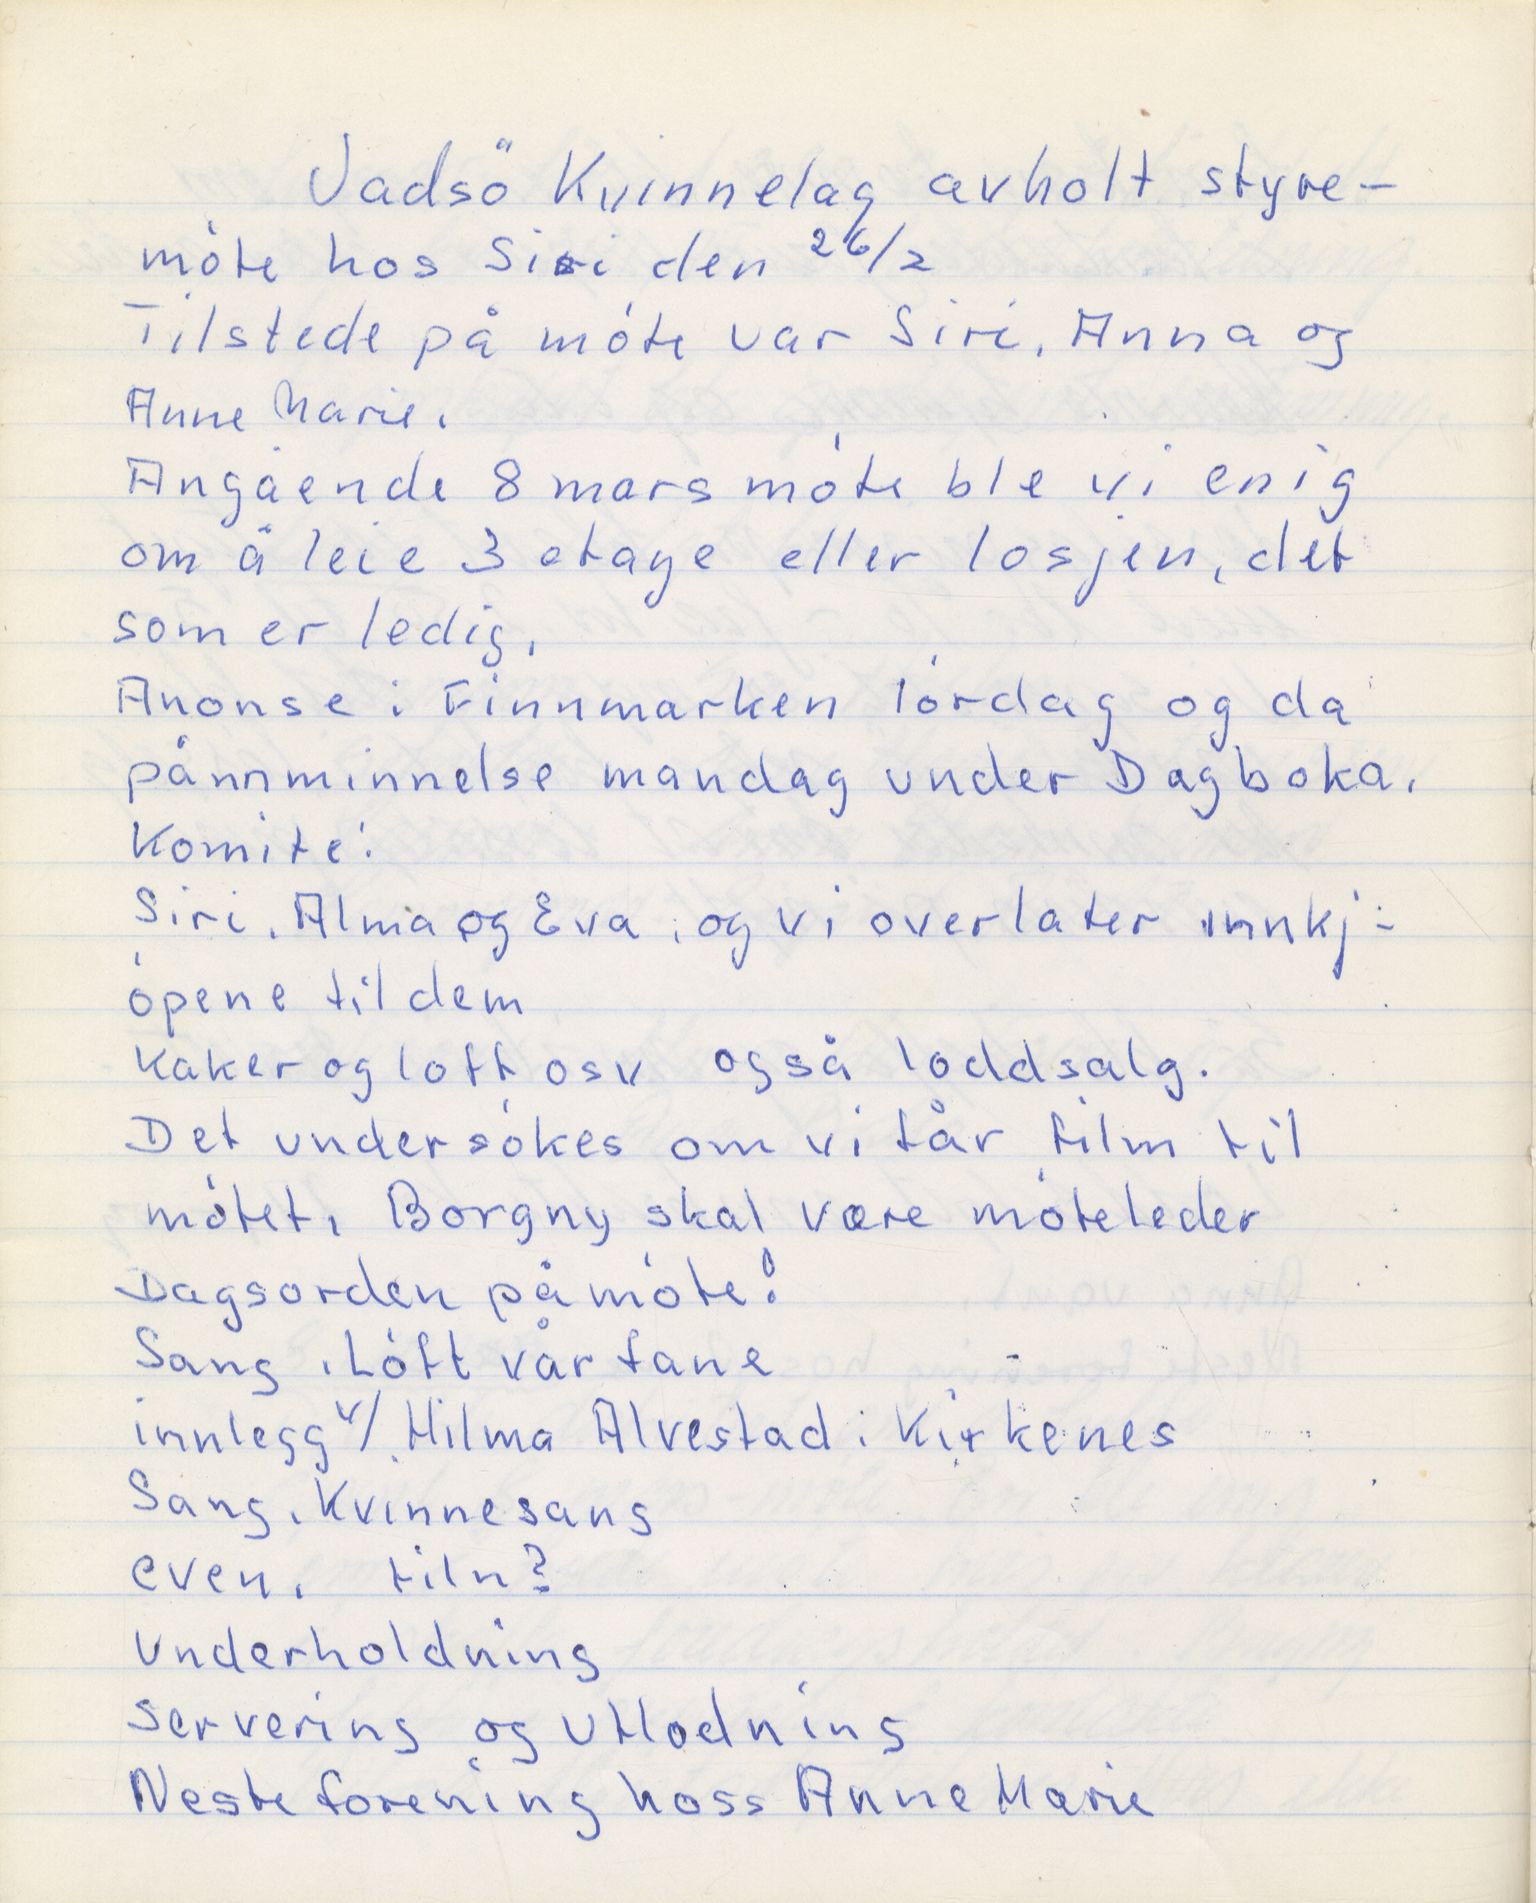 Vadsö Kvinnelag avholt styre-
móte hos Siri den 26/2
Tilstede på móte var Siri, Anna og
Anne Marie.
Angående 8 mars móte ble vi enig
om å leie 3 etage eller losjen, det
som er ledig.
Anonse i Finnmarken lórdag og da
pånnminnelse mandag under Dagboka.
Komite:
Siri, Alma og Eva, og vi overlater innkj-
ópene til dem
Kaker og loff osv også loddsalg.
Det undersókes om vi får film til
mótet, Borgny skal være móteleder
Dagsorden på móte:
Sang, Lóft vår fane
innlegg v/ Hilma Alvestad i Kirkenes
Sang, Kvinnesang
even. film?
Underholdning
Servering og utlodning
Neste forening hoss Anne Marie